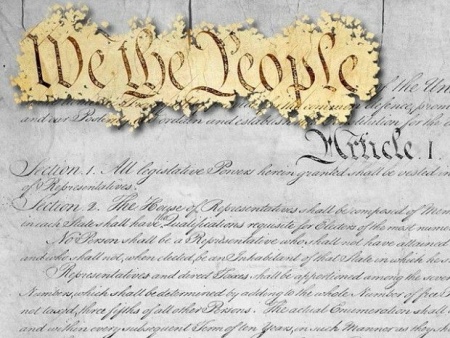 We the People
of the Un
common defence, prom
and our Posterity, do ordain and establish this Constitution for the
Article. I.
Section. 1. All legislative Powers herein granted shall be vested in
of Representatives.
Section. 2. The House of Representatives shall be composed of Mem
in each State shall have the Qualifications requisite for Electors of the most nume
No Person shall be a Representative who shall not have attained
and who shall not, when elected, be an Inhabitant of that State in which he s
Representatives and direct Taxes shall be apportioned among the seve
Numbers, which shall be determined by adding to the whole Number of free P
not taxed, three fifths of all other Persons. The actual Enumeration shall
and within every subsequent Term of ten Years, in such Manner as they s